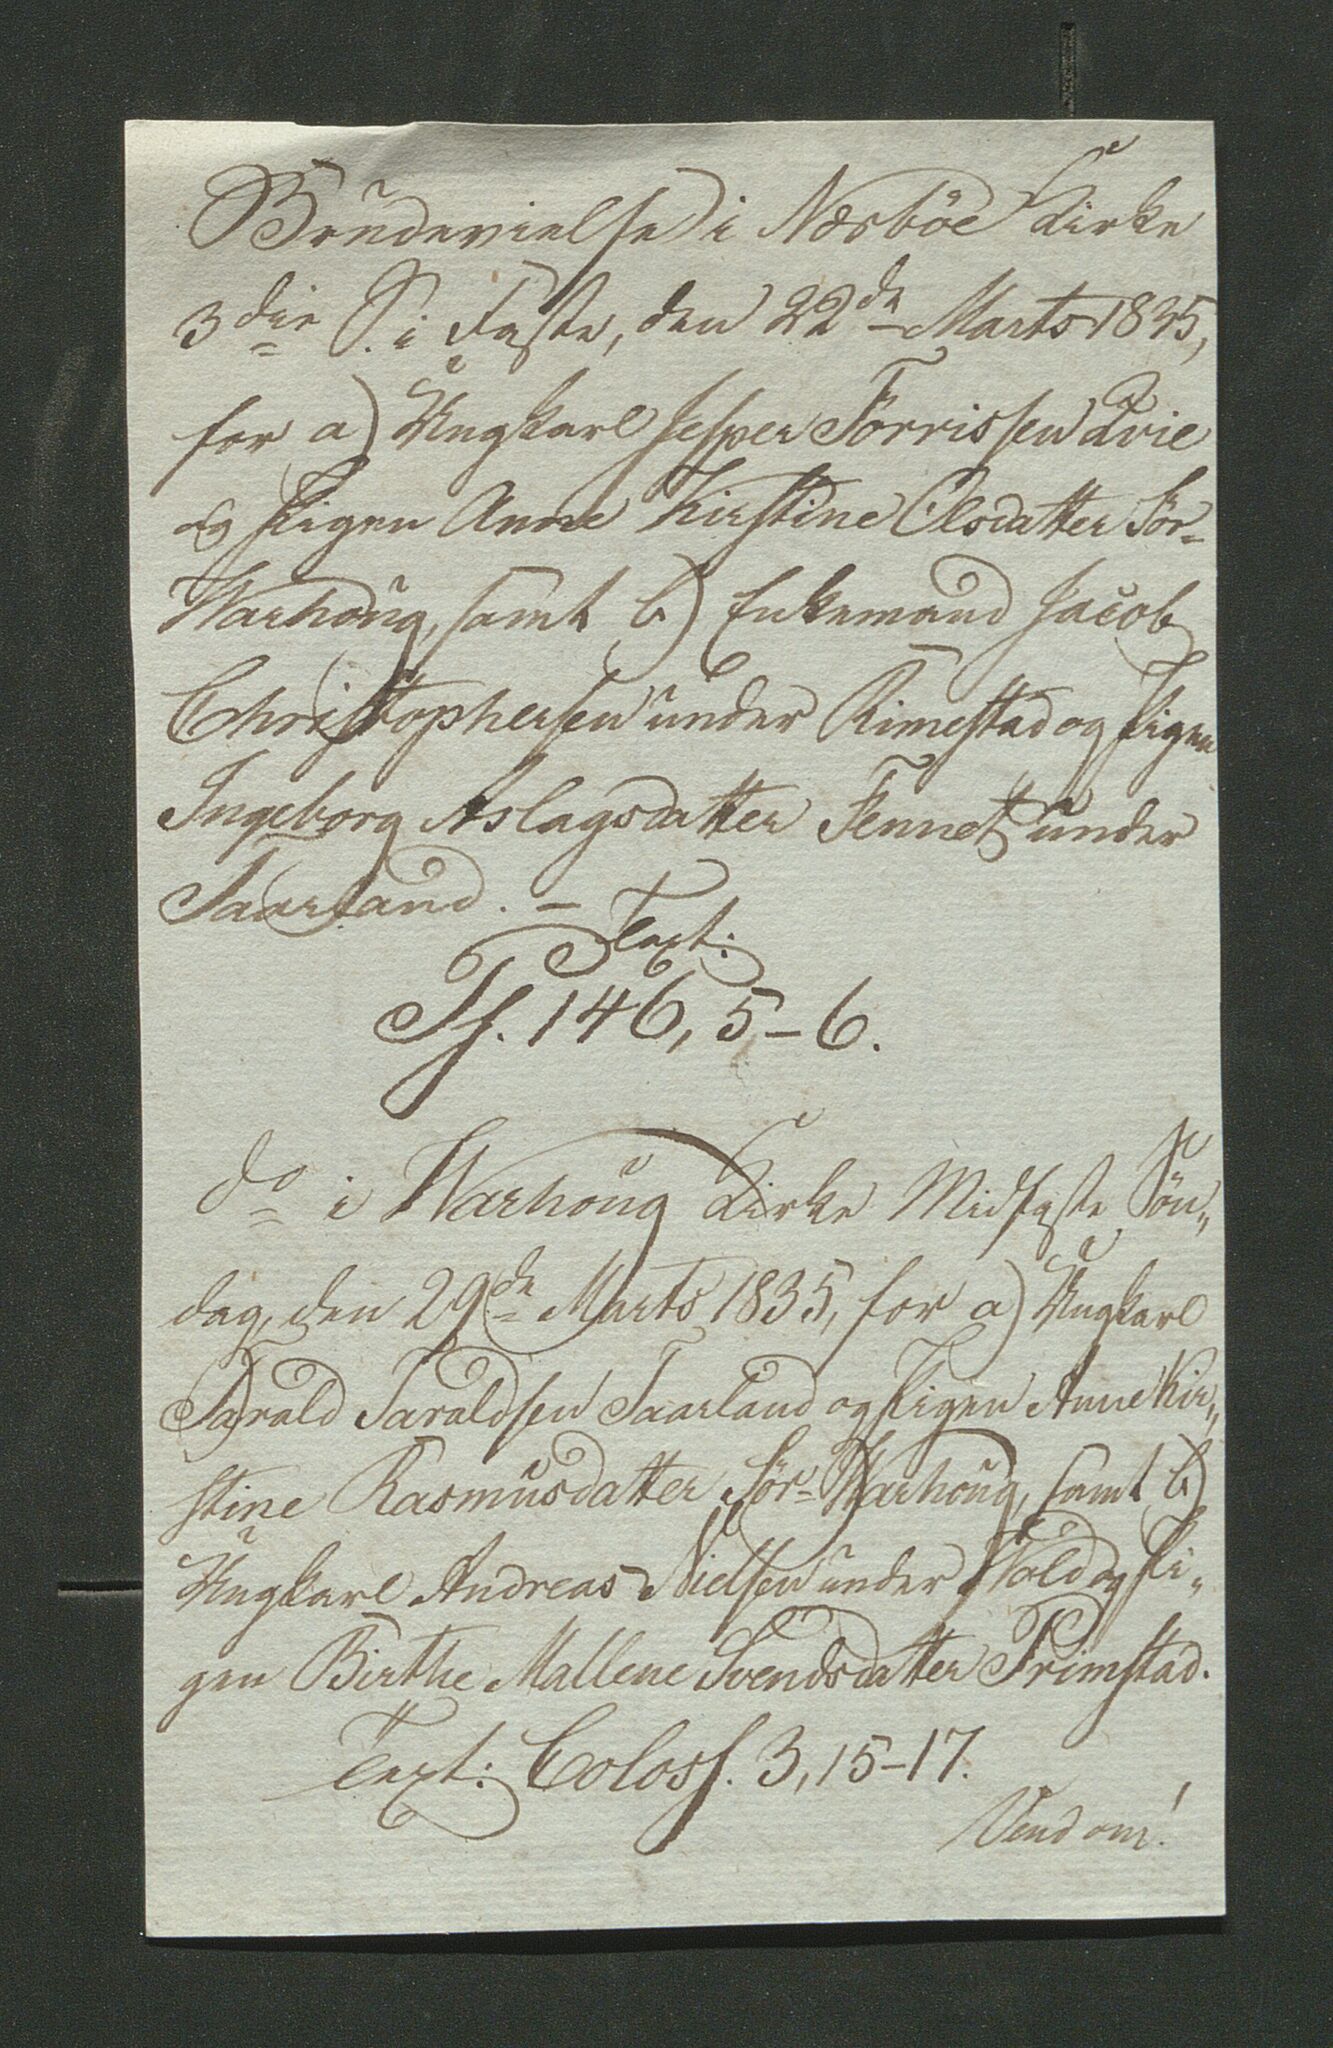 Brudevielse i Nærböe Kirke
3die S. i Faste, den 22de Marts 1835,
for a) Ungkarl Jesper Törrissen Qvie
og Pigen Anne Kirstine Olsdatter Sör-
Warhoug, samt b) Enkemand Jacob
Christophersen under Rimestad og Pigen
Ingeborg Aslagsdatter Tennet under
Taarland. –
Text:
Ps. 146, 5–6.
do i Warhoug Kirke Midfaste Sön„
dag, den 29de Marts 1835, for a) Ungkarl
Tarald Taraldsen Taarland og Pigen Anne Kir„
stine Rasmusdatter Sör-Warhoug, samt b)
Ungkarl Andreas Nielsen under Wold og Pi„
gen Birthe Mallene Svendsdatter Primstad.
Text: Coloss. 3, 15–17.
Vend om!